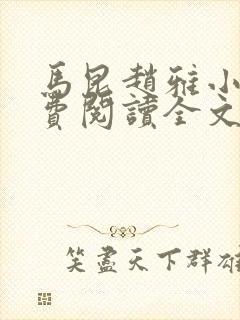 馬昆趙雅小
費閱讀全文
笑盡天下群雄